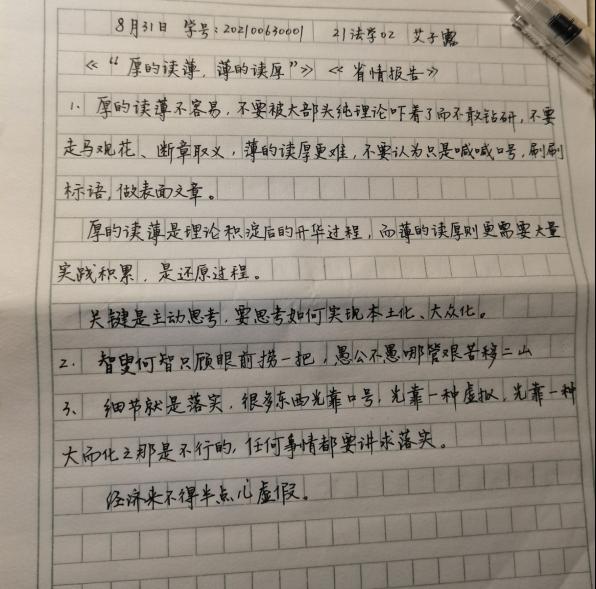 8月31日 学号:202100630001 21法学02 艾子露
《“厚的读薄,薄的读厚”》《省情报告》
1. 厚的读薄不容易,不要被大部头纯理论吓着了而不敢钻研,不要
走马观花、断章取义,薄的读厚更难,不要认为只是喊喊口号,刷刷
标语,做表面文章。
厚的读薄是理论积淀后的升华过程,而薄的读厚则更需要大量
实践积累,是还原过程。
关键是主动思考,要思考如何实现本土化、大众化。
2. 智叟何智只顾眼前捞一把,愚公不愚哪管艰苦移二山
3、细节就是落实,很多东西光靠口号,光靠一种虚拟,光靠一种
大而化之那是不行的,任何事情都要讲求落实。
经济来不得半点儿虚假。